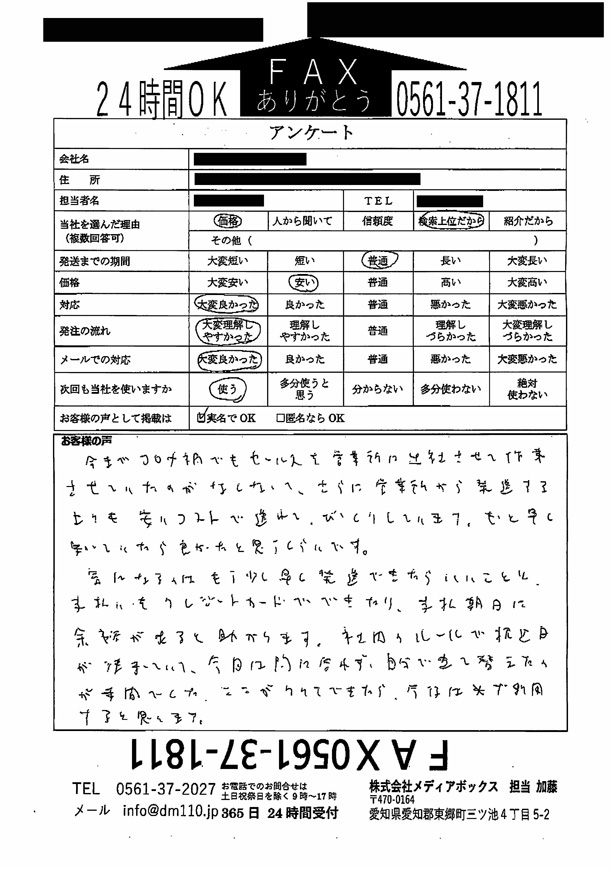 FAX
ありがとう
24時間OK
0561-37-1811
アンケート
会社名
住 所
担当者名 TEL
当社を選んだ理由（複数回答可） 価格 人から聞いて 信頼度 検索上位だから 紹介だから
その他（ ）
発送までの期間 大変短い 短い 普通 長い 大変長い
価格 大変安い 安い 普通 高い 大変高い
対応 大変良かった 良かった 普通 悪かった 大変悪かった
発注の流れ 大変理解しやすかった 理解しやすかった 普通 理解しづらかった 大変理解しづらかった
メールでの対応 大変良かった 良かった 普通 悪かった 大変悪かった
次回も当社を使いますか 使う 多分使うと思う 分からない 多分使わない 絶対使わない
お客様の声として掲載は ☑実名でOK □匿名ならOK
お客様の声
今までコロナ禍でもセールスを営業所に出社させて作業
させていたのがなくなって、さらに営業所から発送する
よりも安いコストで送れて、びっくりしています。もっと早く
知っていたら良かったと思うくらいです。
気になる点はもう少し早く発送できたらいいことと、
支払いもクレジットカードでできたり、支払期日に
余裕が出ると助かります。社内ルールで振込日
が決まっていて、今回は間に合わず、自分で立て替えたの
が手間でした。ここがクリアできたら、今後は必ず利用
すると思います。
FAX0561-37-1811
TEL 0561-37-2027 お電話でのお問合せは
土日祝祭日を除く9時～17時
メール info@dm110.jp 365日 24時間受付
株式会社メディアボックス 担当 加藤
〒470-0164
愛知県愛知郡東郷町三ツ池4丁目5-2